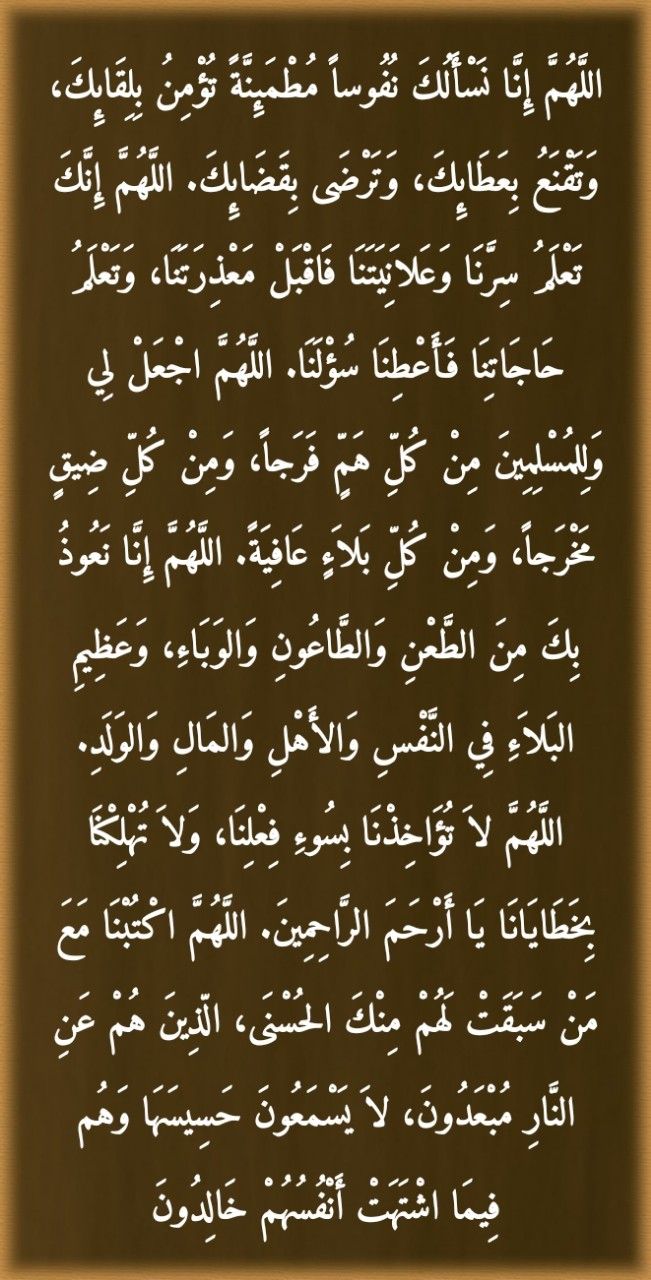 اللَّهُمَّ إِنَّا نَسْأَلُكَ نُفُوساً مُطْمَئِنَّةً تُؤْمِنُ بِلِقَائِكَ،
وَتَقْنَعُ بِعَطَائِكَ، وَتَرْضَى بِقَضَائِكَ. اللَّهُمَّ إِنَّكَ
تَعْلَمُ سِرَّنَا وَعَلاَنِيَتَنَا فَاقْبَلْ مَعْذِرَتَنَا، وَتَعْلَمُ
حَاجَاتِنَا فَأَعْطِنَا سُؤْلَنَا. اللَّهُمَّ اجْعَلْ لِي
وَلِلمُسْلِمِينَ مِنْ كُلِّ هَمٍّ فَرَجاً، وَمِنْ كُلِّ ضِيقٍ
مَخْرَجاً، وَمِنْ كُلِّ بَلاَءٍ عَافِيَةً. اللَّهُمَّ إِنَّا نَعُوذُ
بِكَ مِنَ الطَّعْنِ وَالطَّاعُونِ وَالوَبَاءِ، وَعَظِيمِ
البَلاَءِ فِي النَّفْسِ وَالأَهْلِ وَالمَالِ وَالوَلَدِ.
اللَّهُمَّ لاَ تُؤَاخِذْنَا بِسُوءِ فِعْلِنَا، وَلاَ تُهْلِكْنَا
بِخَطَايَانَا يَا أَرْحَمَ الرَّاحِمِينَ. اللَّهُمَّ اكْتُبْنَا مَعَ
مَنْ سَبَقَتْ لَهُمْ مِنْكَ الحُسْنَى، الّذِينَ هُمْ عَنِ
النَّارِ مُبْعَدُونَ، لاَ يَسْمَعُونَ حَسِيسَهَا وَهُم
فِيمَا اشْتَهَتْ أَنْفُسُهُمْ خَالِدُونَ